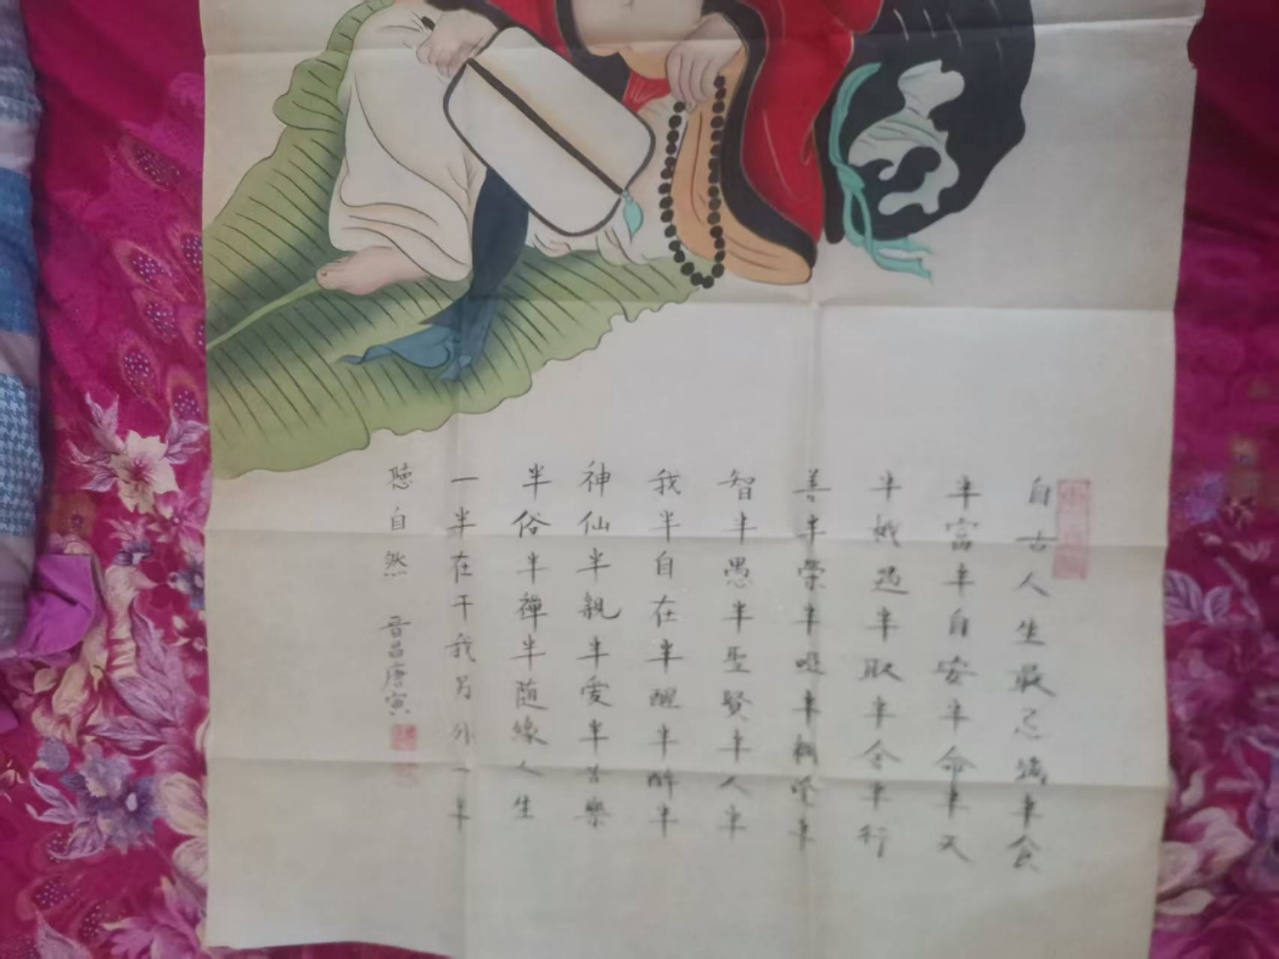 自古人生最忌滿半食
半富半自安半命半天
半機遇半取半舍半行
善半半啞半糊塗半
智半愚半聖賢半人半
我半自在半醒半醉半
神仙半親半愛半苦樂
半俗半禪半随緣人生
一半在于我另外一半
聽自然 晋昌唐寅